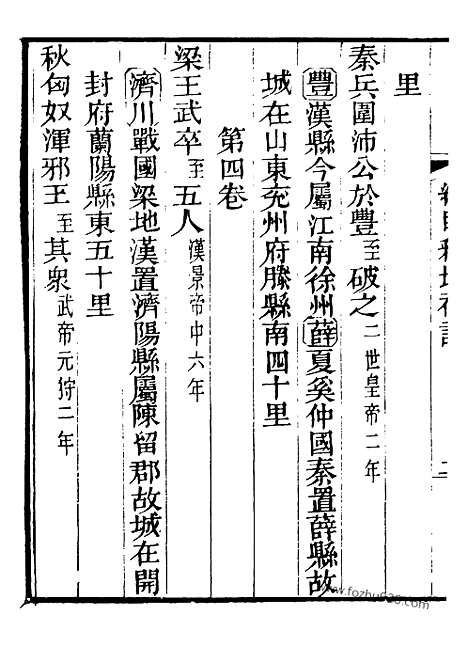 里
秦兵圍沛公於豐至破之二世皇帝二年
豐漢縣今屬江南徐州薛夏奚仲國秦置薛縣故
城在山東兖州府滕縣南四十里
第四卷
梁王武卒至五人漢景帝中六年
濟川戰國梁地漢置濟陽縣屬陳留郡故城在開
封府蘭陽縣東五十里
秋匈奴渾邪王至其衆武帝元狩二年